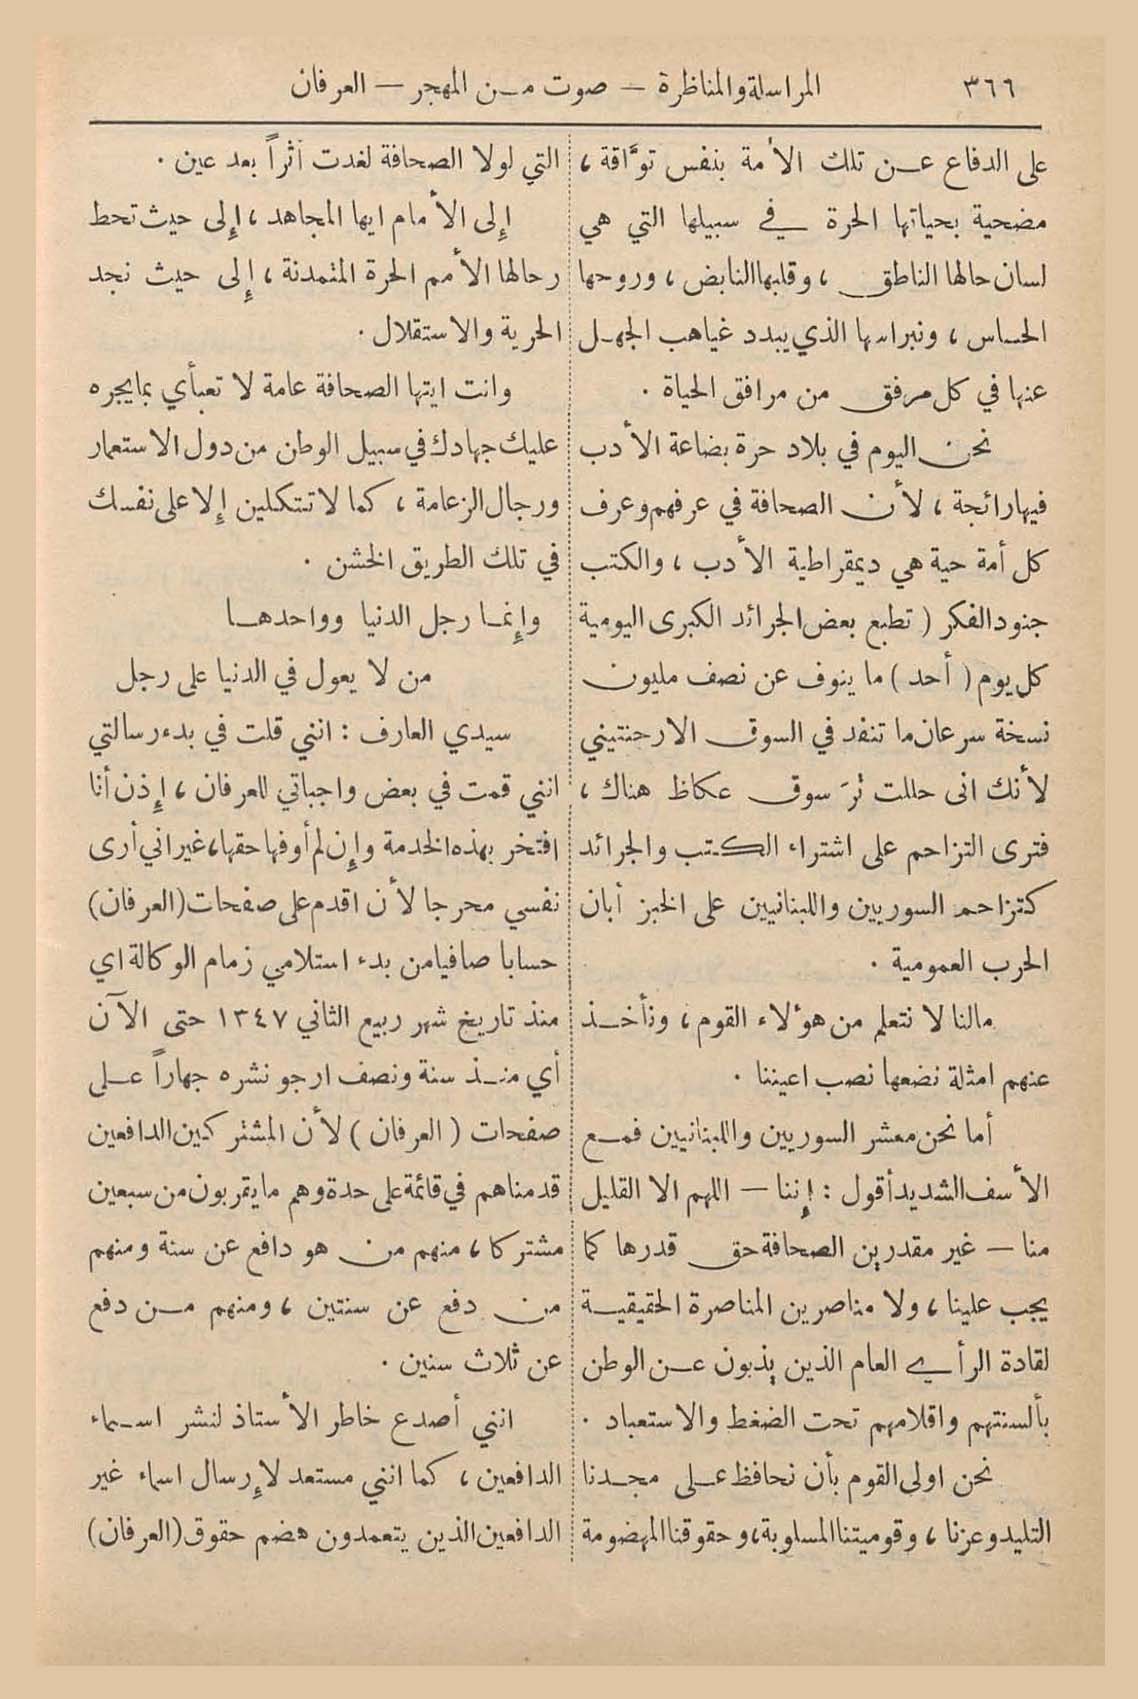 ٣٦٦
المراسلة والمناظرة — صوت من المهجر — العرفان
على الدفاع عن تلك الأمة بنفس توَّاقة ،
مضحية بحياتها الحرة في سبيلها التي هي
لسان حالها الناطق ، وقلبها النابض ، وروحها
الحساس ، ونبراسها الذي يبدد غياهب الجهل
عنها في كل مرفق من مرافق الحياة .
نحن اليوم في بلاد حرة بضاعة الأدب
فيها رائجة ، لأن الصحافة في عرفهم وعرف
كل أمة حية هي ديمقراطية الأدب ، والكتب
جنود الفكر ( تطبع بعض الجرائد الكبرى اليومية
كل يوم ( أحد ) ما ينوف عن نصف مليون
نسخة سرعان ما تنفد في السوق الارجنتيني
لأنك انى حللت ترَ سوق عكاظ هناك ،
فترى التزاحم على اشتراء الكتب والجرائد
كتزاحم السوريين واللبنانيين على الخبز أبان
الحرب العمومية .
مالنا لا نتعلم من هؤلاء القوم ، ونأخذ
عنهم امثلة نضعها نصب اعيننا .
أما نحن معشر السوريين واللبنانيين فمع
الأسف الشديد أقول : إننا — اللهم الا القليل
منا — غير مقدرين الصحافة حق قدرها كما
يجب علينا ، ولا مناصرين المناصرة الحقيقية
لقادة الرأي العام الذين يذبون عن الوطن
بألسنتهم واقلامهم تحت الضغط والاستعباد .
نحن اولى القوم بأن نحافظ على مجدنا
التليد وعزنا ، وقوميتنا المسلوبة ، وحقوقنا المهضومة
التي لولا الصحافة لغدت أثراً بعد عين .
إلى الأمام ايها المجاهد ، إلى حيث تحط
رحالها الأمم الحرة المتمدنة ، إلى حيث نجد
الحرية والاستقلال .
وانت ايتها الصحافة عامة لا تعبأي بما يجره
عليك جهادك في سبيل الوطن من دول الاستعمار
ورجال الزعامة ، كما لا تتكلين إلا على نفسك
في تلك الطريق الخشن .
وإنما رجل الدنيا وواحدها
من لا يعول في الدنيا على رجل
سيدي العارف : انني قلت في بدء رسالتي
انني قمت في بعض واجباتي للعرفان ، إذن أنا
افتخر بهذه الخدمة وإن لم أوفها حقها ، غير اني أرى
نفسي محرجا لأن اقدم على صفحات (العرفان)
حسابا صافيا من بدء استلامي زمام الوكالة اي
منذ تاريخ شهر ربيع الثاني ١٣٤٧ حتى الآن
أي منذ سنة ونصف ارجو نشره جهاراً على
صفحات ( العرفان ) لأن المشتركين الدافعين
قدمناهم في قائمة على حدة وهم ما يقربون من سبعين
مشتركا ، منهم من هو دافع عن سنة ومنهم
من دفع عن سنتين ، ومنهم من دفع
عن ثلاث سنين .
انني أصدع خاطر الأستاذ لنشر اسماء
الدافعين ، كما انني مستعد لإرسال اسماء غير
الدافعين الذين يتعمدون هضم حقوق (العرفان)